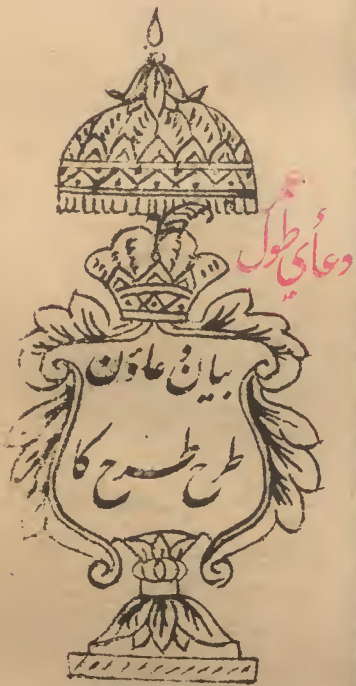 دعأي طول
بیان دعاؤن
طرح طرح کا